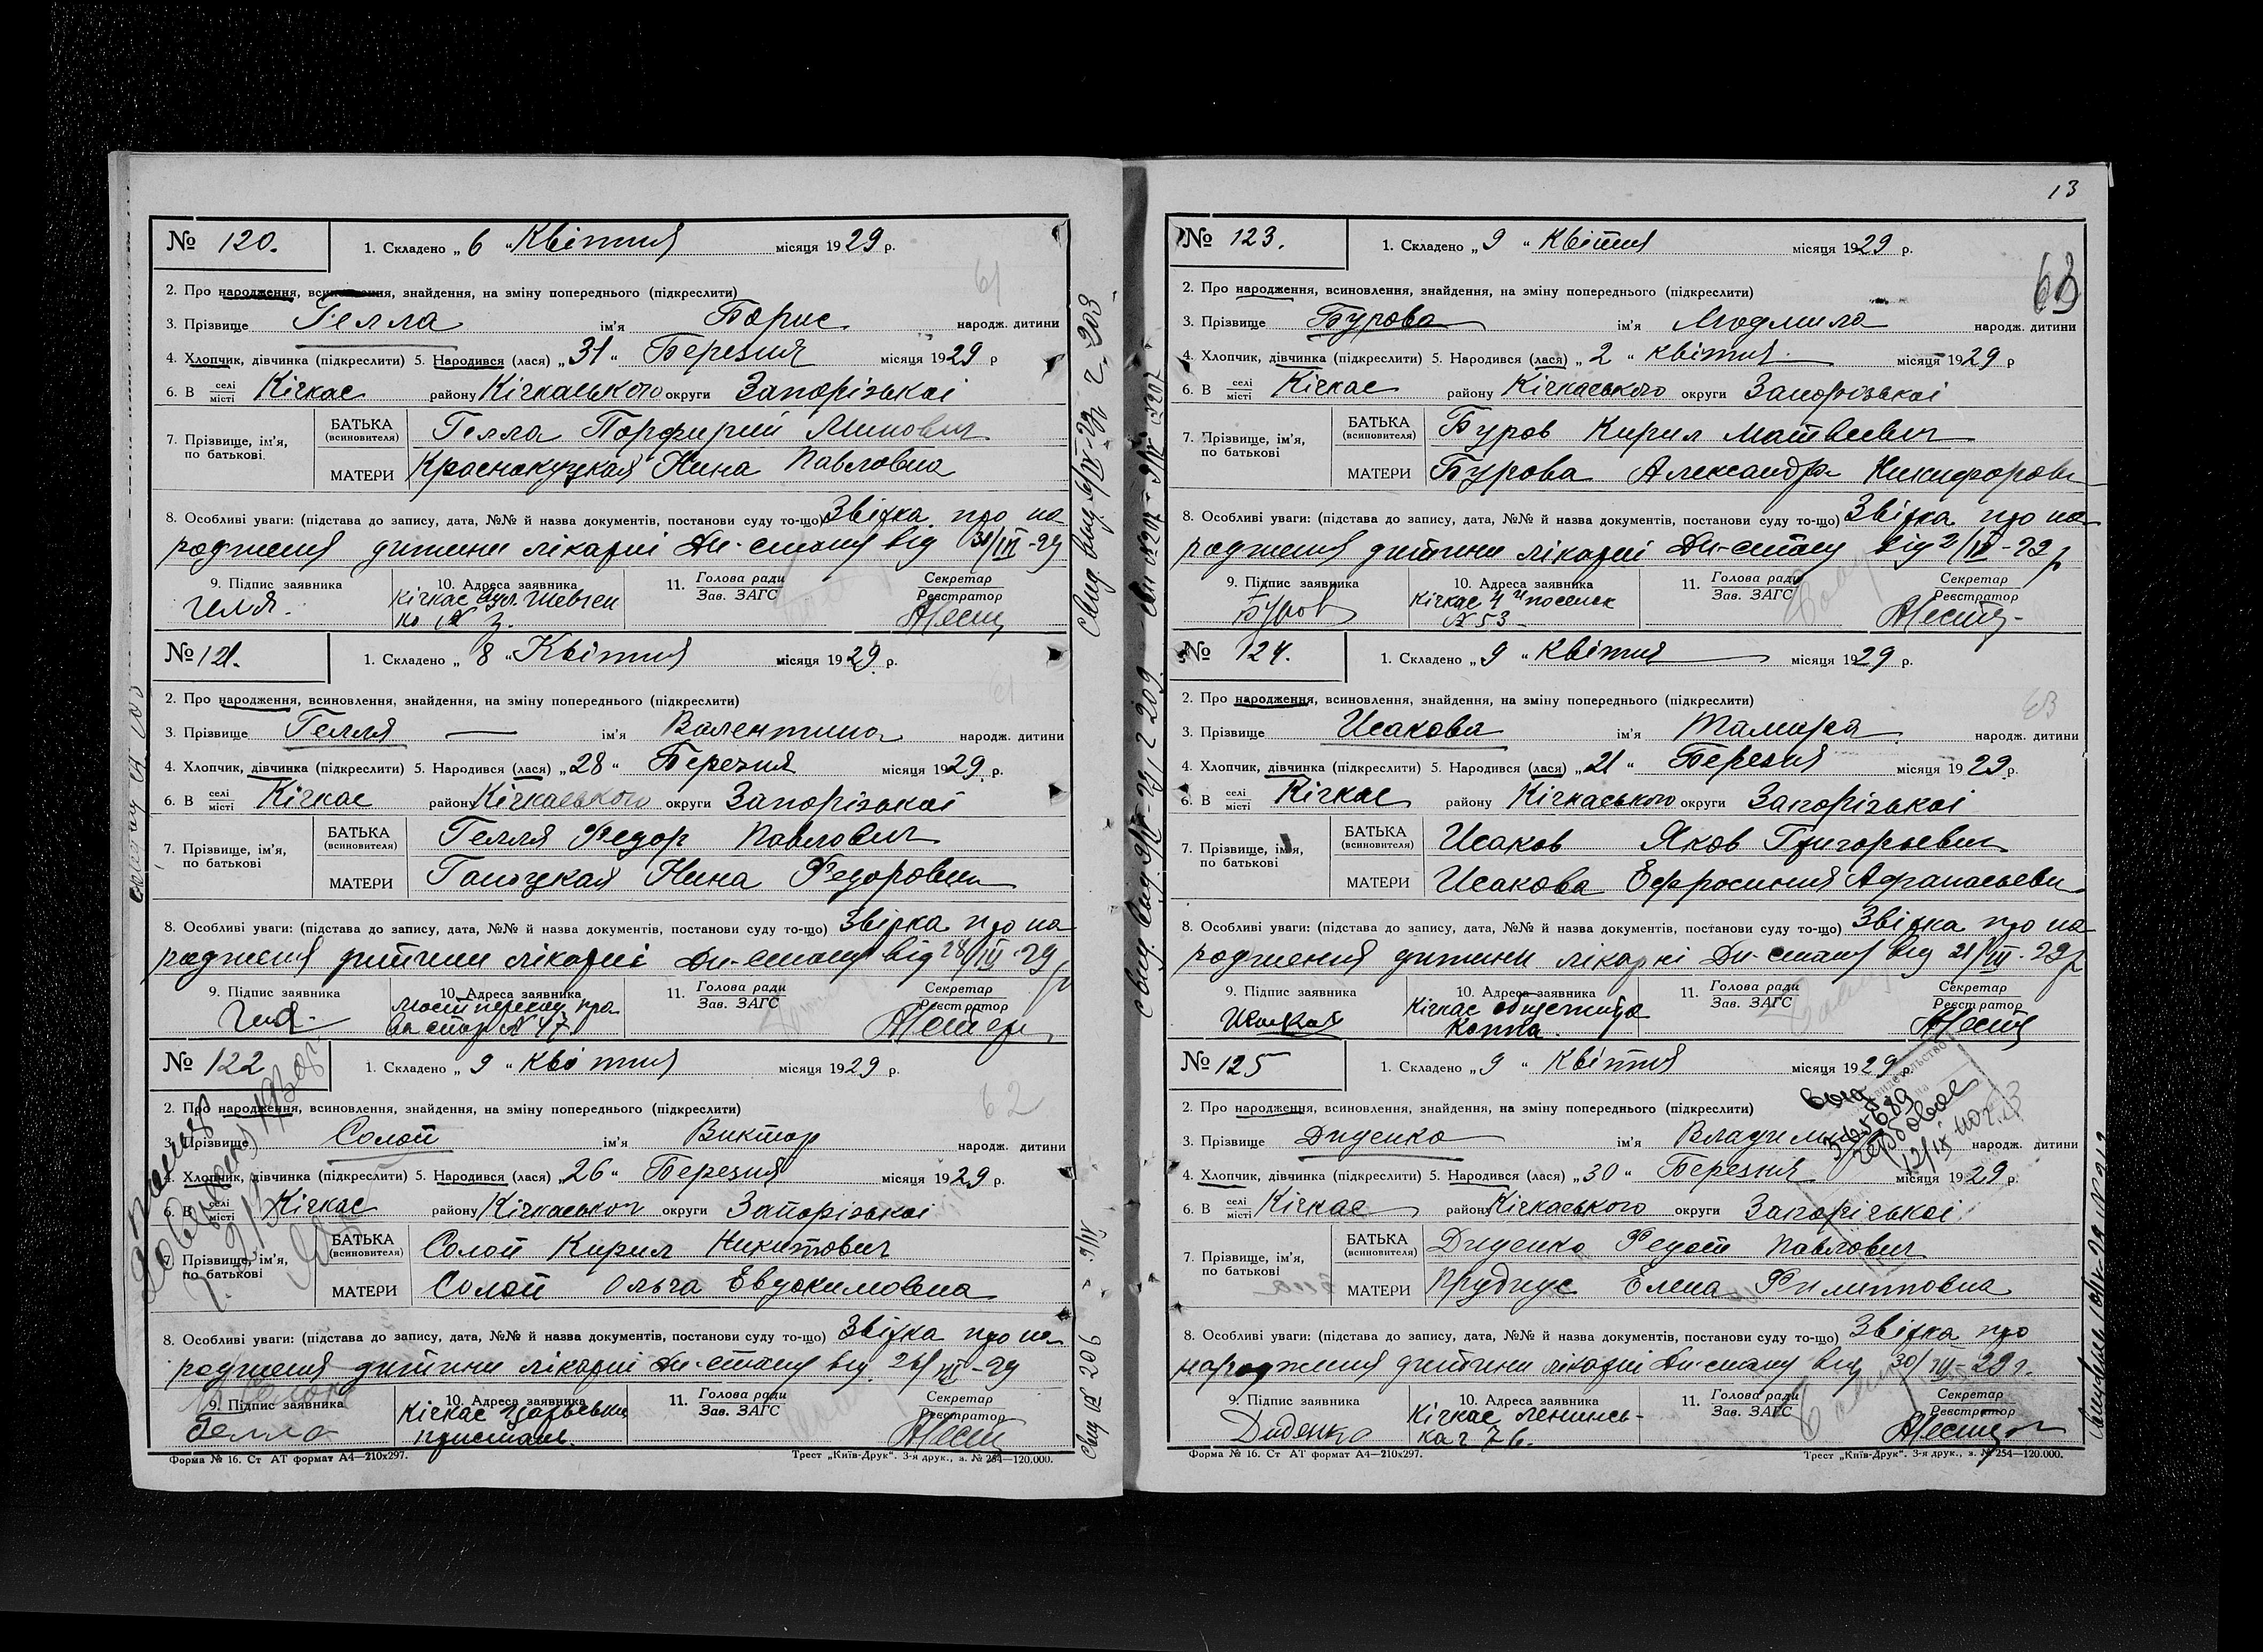 № 120. 1. Складено „ 6 “ Квітня місяця 1929 р.
61
2. Про народження, всиновлення, знайдення, на зміну попереднього (підкреслити)
3. Прізвище Гелла ім'я Борис народж. дитини
4. Хлопчик, дівчинка (підкреслити) 5. Народився (лася) „ 31 “ Березня місяця 1929 р
6. В селі місті Кічкас району Кічкаського округи Запорізькоі
7. Прізвище, ім'я, по батькові.
БАТЬКА (всиновителя) Гелла Порфирий Минович
МАТЕРИ Краснокуцкая Нина Павловна
8. Особливі уваги: (підстава до запису, дата, №№ й назва документів, постанови суду то-що) Звістка про на
родження дитини лікарні Дн-стану від 31/III-29
9. Підпис заявника 10. Адреса заявника 11. Голова ради Зав. ЗАГС Секретар Реєстратор
Кічкас вул. Шевчен
ко № 3.
№ 121. 1. Складено „ 8 “ Квітня місяця 1929. р.
61
2. Про народження, всиновлення, знайдення, на зміну попереднього (підкреслити)
3. Прізвище Гелля ім'я Валентина народж. дитини
4. Хлопчик, дівчинка (підкреслити) 5. Народився (лася) „ 28 “ Березня місяця 1929 р.
6. В селі місті Кічкас району Кічкаського округи Запорізькоі
7. Прізвище, ім'я, по батькові
БАТЬКА (всиновителя) Гелля Федор Павлович
МАТЕРИ Нина Федоровна
8. Особливі уваги: (підстава до запису, дата, №№ й назва документів, постанови суду то-що) Звістка про на
родження дитини лікарні Дн-стану від 28/III-29 р
9. Підпис заявника 10. Адреса заявника 11. Голова ради Зав. ЗАГС Секретар Реєстратор
№ 47
№ 122 1. Складено „ 9 “ Квітня місяця 1929 р.
62
2. Про народження, всиновлення, знайдення, на зміну попереднього (підкреслити)
3. Прізвище Солоп ім'я Виктор народж. дитини
4. Хлопчик, дівчинка (підкреслити) 5. Народився (лася) „ 26 “ Березня місяця 1929 р.
6. В селі місті Кічкас району Кічкаського округи Запорізькоі
7. Прізвище, ім'я, по батькові
БАТЬКА (всиновителя) Солоп Кирил Никитович
МАТЕРИ Солоп Ольга Евдокимовна
8. Особливі уваги: (підстава до запису, дата, №№ й назва документів, постанови суду то-що) Звістка про на
родження дитини лікарні Дн-стану від 26/III-29
9. Підпис заявника 10. Адреса заявника 11. Голова ради Зав. ЗАГС Секретар Реєстратор
Кічкас
пристань.
Форма № 16. Ст АТ формат А4—210x297. Трест „Київ-Друк“. 3-я друк., з. № 254—120.000.
13
№ 123. 1. Складено „ 9 “ Квітня місяця 1929 р.
63
2. Про народження, всиновлення, знайдення, на зміну попереднього (підкреслити)
3. Прізвище Бурова ім'я Людмила народж. дитини
4. Хлопчик, дівчинка (підкреслити) 5. Народився (лася) „ 2 “ квітня місяця 1929 р
6. В селі місті Кічкас району Кічкаського округи Запорізькоі
7. Прізвище, ім'я, по батькові
БАТЬКА (всиновителя) Буров Кирил Матвеевич
МАТЕРИ Бурова Александра Никифоровн
8. Особливі уваги: (підстава до запису, дата, №№ й назва документів, постанови суду то-що) Звістка про на
родження дитини лікарні Дн-стану від 2/IV-29 р
9. Підпис заявника 10. Адреса заявника 11. Голова ради Зав. ЗАГС Секретар Реєстратор
Буров Кічкас 4й поселок
№ 53
№ 124. 1. Складено „ 9 “ Квітня місяця 1929 р.
63
2. Про народження, всиновлення, знайдення, на зміну попереднього (підкреслити)
3. Прізвище Исакова ім'я Тамара народж. дитини
4. Хлопчик, дівчинка (підкреслити) 5. Народився (лася) „ 21 “ Березня місяця 1929 р.
6. В селі місті Кічкас району Кічкаського округи Запорізькоі
7. Прізвище, ім'я, по батькові
БАТЬКА (всиновителя) Исаков Яков Григорьевич
МАТЕРИ Исакова Ефросиния Афанасьевн
8. Особливі уваги: (підстава до запису, дата, №№ й назва документів, постанови суду то-що) Звістка про на
родження дитини лікарні Дн-стану від 21/III-29 р
9. Підпис заявника 10. Адреса заявника 11. Голова ради Зав. ЗАГС Секретар Реєстратор
Кічкас
№ 125 1. Складено „ 9 “ Квітня місяця 1929 р.
2. Про народження, всиновлення, знайдення, на зміну попереднього (підкреслити)
3. Прізвище Диденко ім'я народж. дитини
4. Хлопчик, дівчинка (підкреслити) 5. Народився (лася) „ 30 “ Березня місяця 1929 р.
6. В селі місті Кічкас району Кічкаського округи Запорізькоі
7. Прізвище, ім'я, по батькові
БАТЬКА (всиновителя) Диденко Федот Павлович
МАТЕРИ Прудиус Елена Филиповна
8. Особливі уваги: (підстава до запису, дата, №№ й назва документів, постанови суду то-що) Звістка про
народження дитини лікарні Дн-стану від 30/III-29 р.
9. Підпис заявника 10. Адреса заявника 11. Голова ради Зав. ЗАГС Секретар Реєстратор
Диденко Кічкас Ленинсь-
ка 76.
Форма № 16. Ст АТ формат А4—210x297. Трест „Київ-Друк“. 3-я друк., з. № 254—120.000.